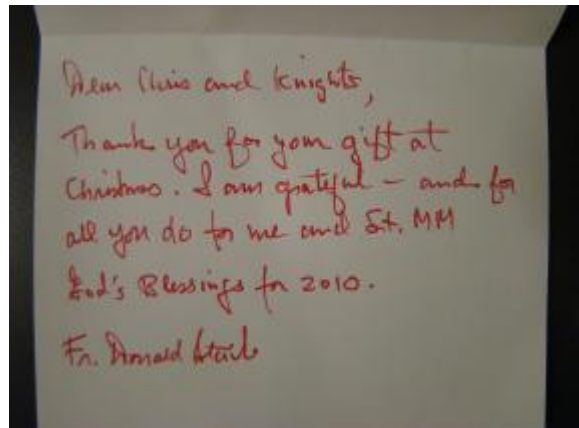 Dear Chris and Knights,
Thank you for your gift at
Christmas. I am grateful – and for
all you do for me and St. MM
God's Blessings for 2010.
Fr. Donald